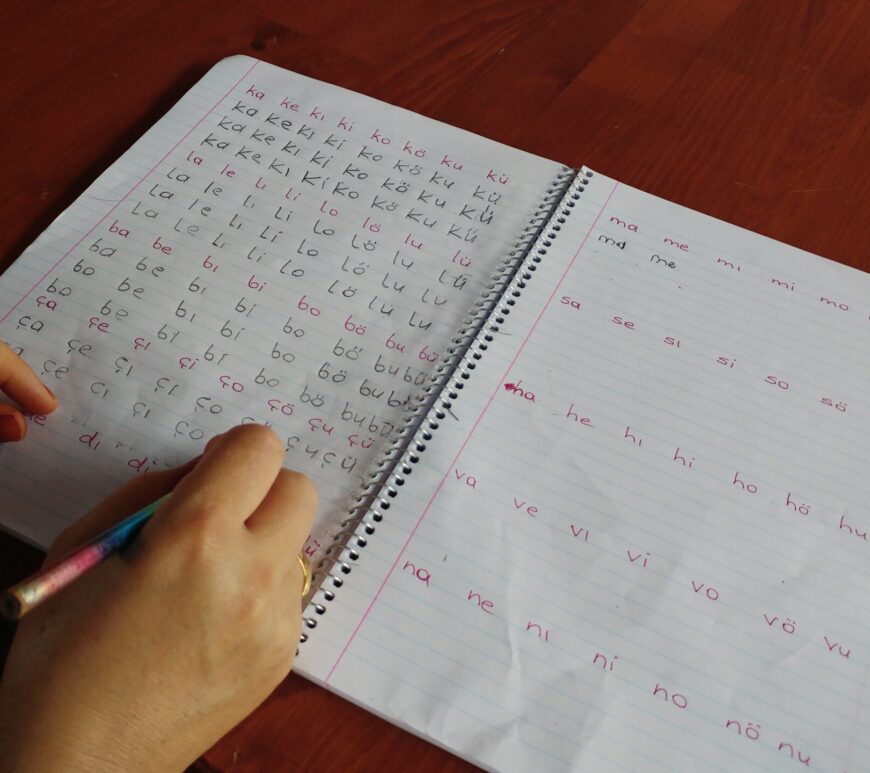 ka ke kı ki ko kö ku kü
ka ke kı ki ko kö ku kü
ka ke kı ki ko kö ku kü
ka ke kı ki ko kö ku kü
la le lı li lo lö lu lü
la le lı li lo lö lu lü
la le lı li lo lö lu lu
ba be bı bi bo bö bu bü
ba be bı bi bo bö bu bü
bo be bı bi bo bö bu bü
bo be bi bi bo bö bu bü
ça çe çı çi ço çö çu çü
ça çe çı çi ço çu çü
çe çı çı ço
dı di
ü
ma me mı mi mo
ma me
sa se sı si so sö
ha he hı hi ho hö hu
va ve vı vi vo vö vu
na ne nı ni no nö nu